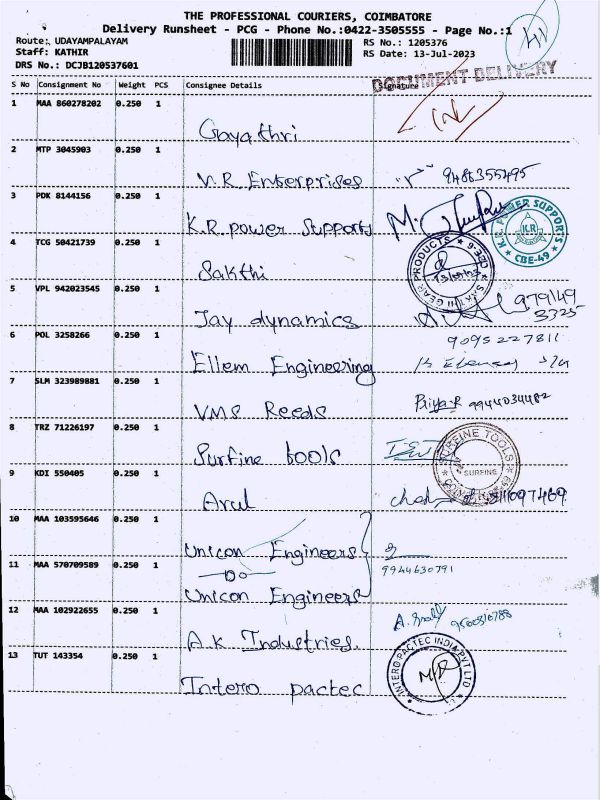 THE PROFESSIONAL COURIERS, COIMBATORE
Delivery Runsheet - PCG - Phone No.:0422-3505555 - Page No.:1
Route: UDAYAMPALAYAM
RS No.: 1205376
Staff: KATHIR
RS Date: 13-Jul-2023
DRS No.: DCJB120537601
DOCUMENT DELIVERY
S No Consignment No Weight PCS Consignee Details Signature
1 MAA 860278202 0.250 1
Gayathri
2 MTP 3045903 0.250 1
V.R. Enterprises 9486355495
3 PDK 8144156 0.250 1
K.R. power Supports
K.R. POWER SUPPORTS
K.R
* CBE-49 *
4 TCG 50421739 0.250 1
Sakthi
SAKTHI GEAR PRODUCTS
5 VPL 942023545 0.250 1
Jay dynamics 979149
3325
6 POL 3258266 0.250 1
9095227811
Ellem Engineering
7 SLM 323989881 0.250 1
VMS Reeds Priya.R 9944034482
8 TRZ 71226197 0.250 1
Surfine tools
SURFINE TOOLS
SURFINE
9 KDI 550405 0.250 1
Arul
10 MAA 103595646 0.250 1
Unicon Engineers
11 MAA 570709589 0.250 1
9944630791
-Do-
Unicon Engineers
12 MAA 102922655 0.250 1
A.K Industries.
13 TUT 143354 0.250 1
Intero pactec
INTERO PACTEC INDIA PVT LTD